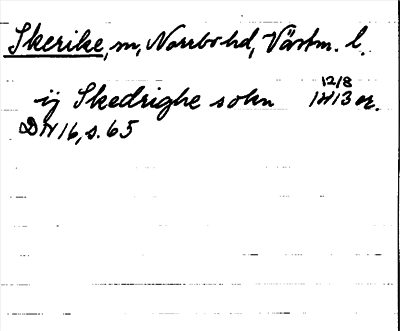 Skerike, sn, Norrbo hd, Västm. l.
12/8
ij Skedrighe sokn 1413 or.
DN 16, s. 65